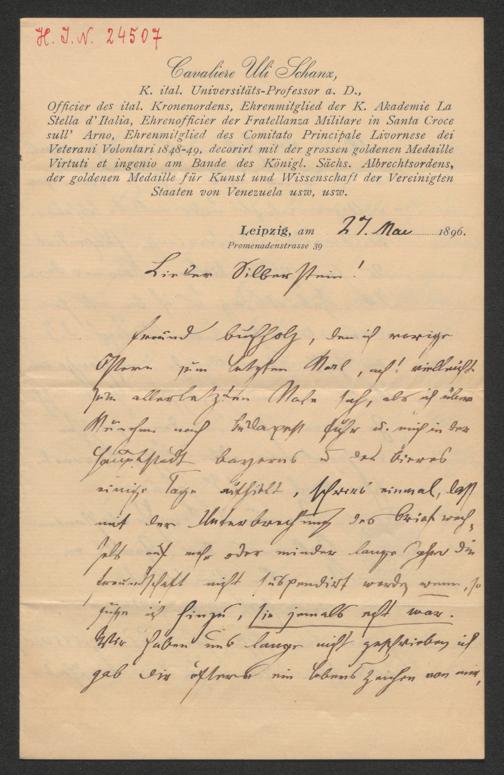 H. I. N. 24507
Cavaliere Uli Schanz,
K. ital. Universitäts-Professor a. D.,
Officier des ital. Kronenordens, Ehrenmitglied der K. Akademie La
Stella d'Italia, Ehrenofficier der Fratellanza Militare in Santa Croce
sull' Arno, Ehrenmitglied des Comitato Principale Livornese dei
Veterani Volontari 1848-49, decorirt mit der grossen goldenen Medaille
Virtuti et ingenio am Bande des Königl. Sächs. Albrechtsordens,
der goldenen Medaille für Kunst und Wissenschaft der Vereinigten
Staaten von Venezuela usw, usw.
Leipzig, am 27. Mai 1896.
Promenadenstrasse 39
Lieber Silberstein!
Freund Buchholz, den ich vorige
Ostern zum letzten Mal, ach! vielleicht
zum allerletzten Male sah, als ich über
München nach Budapest fuhr u. mich in der
Hauptstadt Bayerns u des Bieres
einige Tage aufhielt, schrieb einmal, daß
mit der Unterbrechung des Briefwech-
sels auf mehr oder minder lange die
Freundschaft nicht suspendirt werde, wenn, so
füge ich hinzu, sie jemals echt war.
Wir haben uns lange nicht geschrieben ich
gab Dir öfters ein Lebenszeichen von mir,